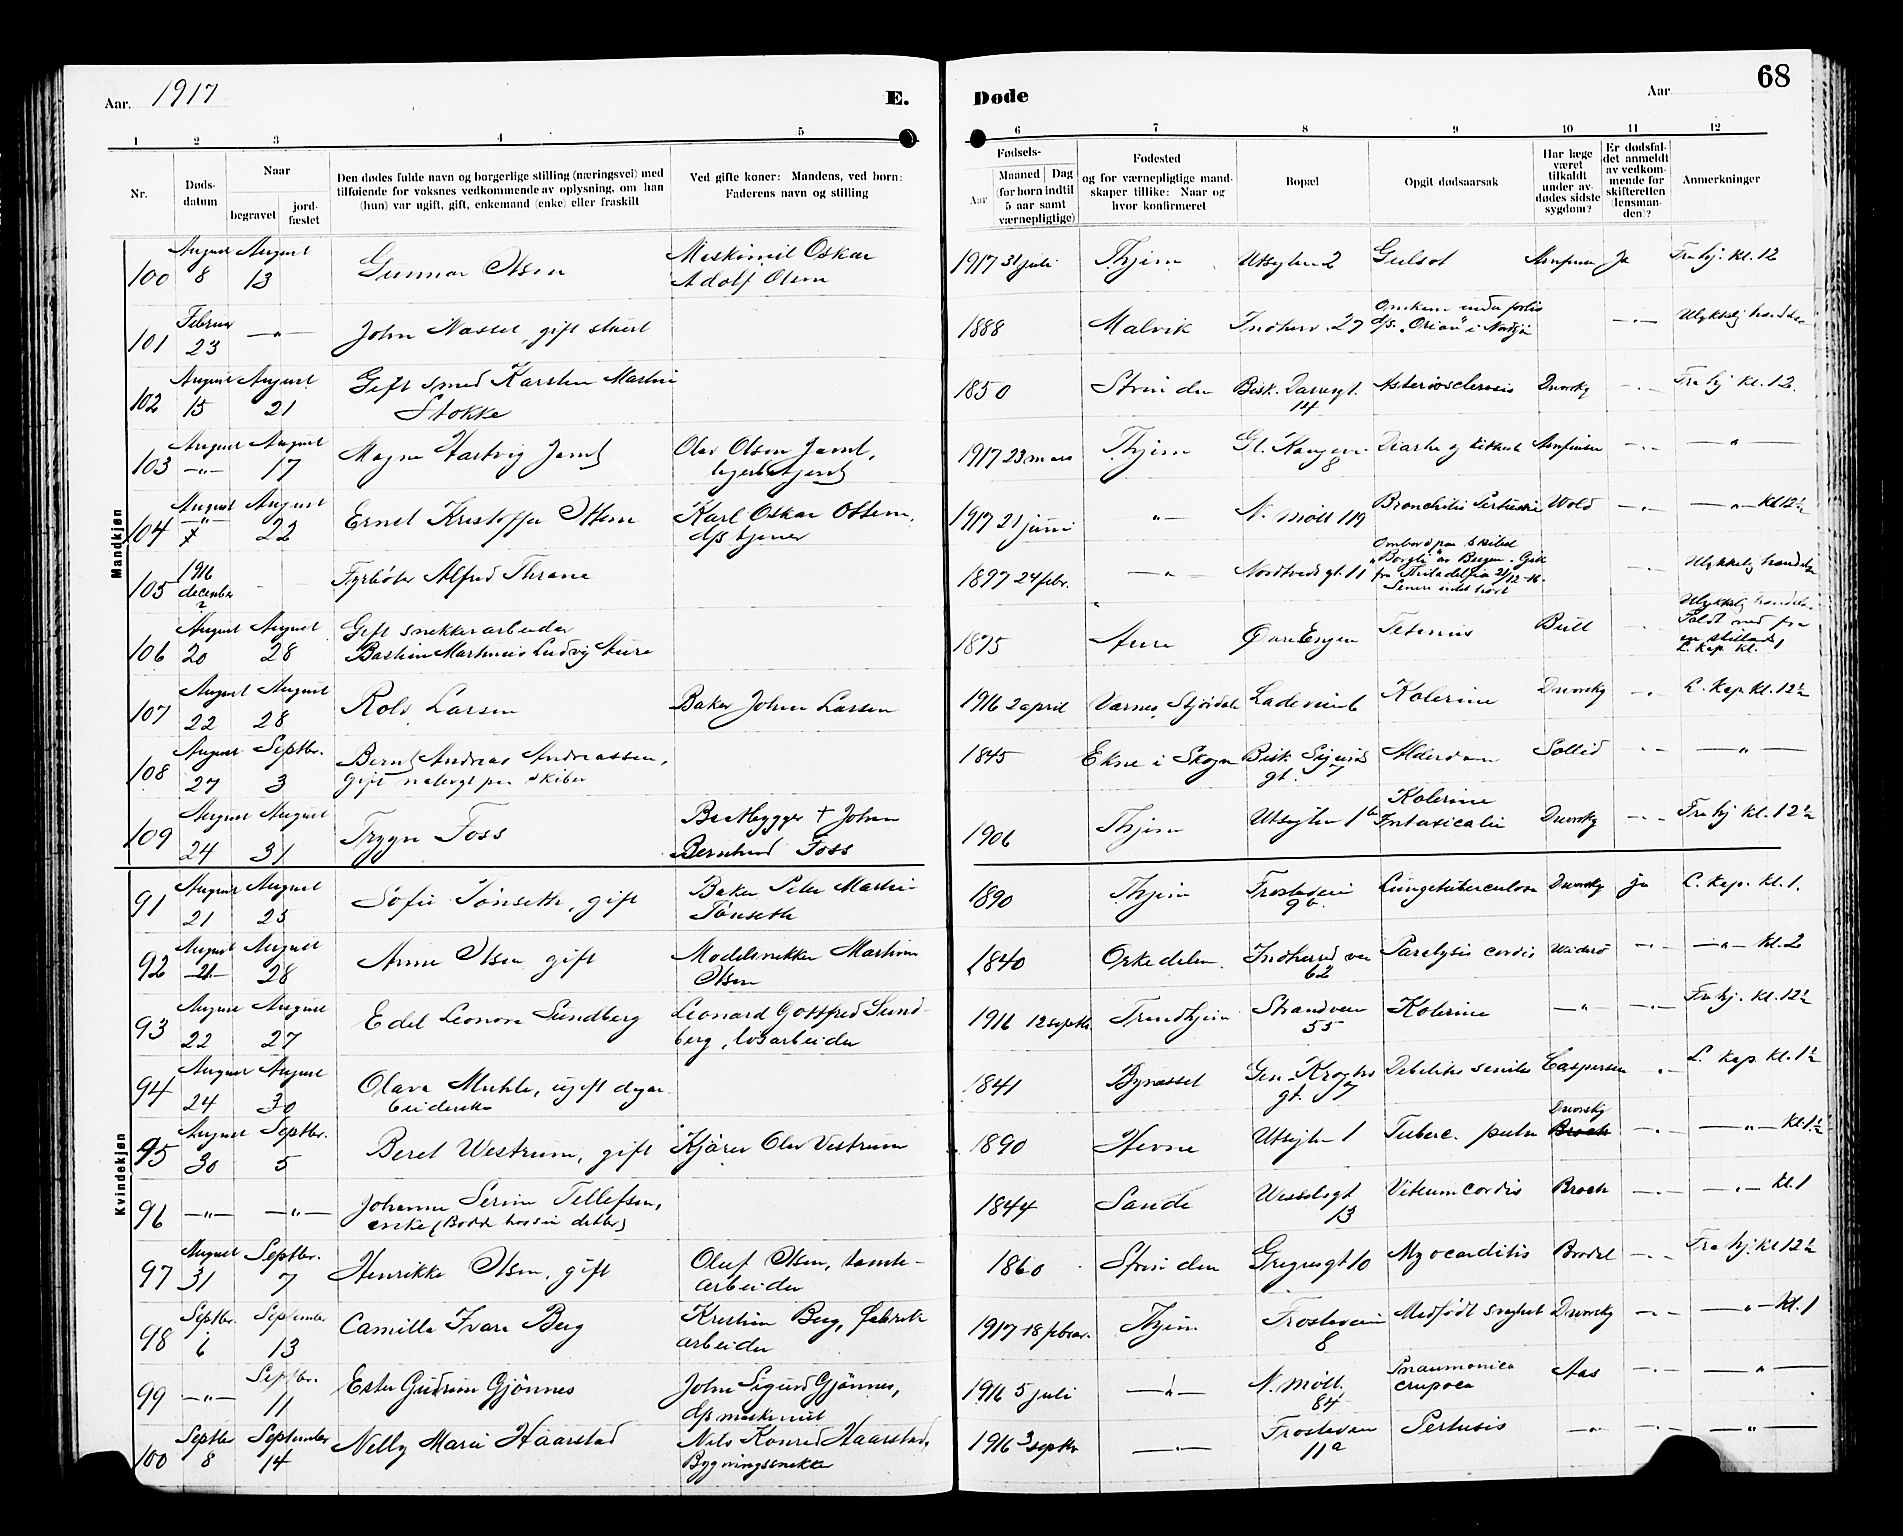 Aar. 1917
E.
Døde
Aar
68
1 2 3 4 5 6 7 8 9 10 11 12
Nr.
Døds-
datum
Naar
begravet
jord-
fæstet
Den dødes fulde navn og borgerlige stilling (næringsvei) med
tilføiende for voksnes vedkommende av oplysning, om han
(hun) var ugift, gift, enkemand (enke) eller fraskilt
Ved gifte koner: Mandens, ved børn:
Faderens navn og stilling
Fødsels-
Aar
Maaned | Dag
(for børn indtil
5 aar samt
værnepligtige)
Fødested
og for værnepligtige mand-
skaper tillike: Naar og
hvor konfirmeret
Bopæl
Opgit dødsaarsak
Har læge
været
tilkaldt
under av-
dødes sidste
sygdom?
Er dødsfal-
det anmeldt
av vedkom-
mende for
skifteretten
(lensman-
den)?
Anmerkninger
Mandkjøn
100 August 8 August 13 Gunnar Olsen Maskinist Oskar
Adolf Olsen 1917 31 juli Thjem Utsigten 2 Gulsot Ja Frahj. kl. 12
101 Februar 23 —"— John Nasset, gift stuert 1888 Malvik Indherv. 27 Omkom under forlis
d/s. "Orion" i Nordsjø —"— Ulykkelig hændelse
102 August 15 August 21 Gift smed Karsten Martin
Stokke 1850 Strinden Bisk. Darregt.
14 Arteriosclerosis Dverksy —"— Fra hj kl. 12.
103 August —"— August 17 Magne Hartvig Jamt Olav Olsen Jamt,
1917 23 mars Thjem Gl. Kongev.
8 —"— —"—
104 August 7 August 22 Ernst Kristoffer Ottem Karl Oskar Ottem,
1917 21 juni —"— N. Møll 119 Bronchitis Wold —"— —"— Kl 12½
105 1916
december
? Fyrbøter Alfred Thrane 1897 24 febr. —"— Nordtvedsgt. 11 Ombord paa skibet
"Borgli" av Bergen. Gik
fra Philadelfia 21/12-16.
Senere intet hørt —"— Ulykkelig hændelse
106 August 20 August 28 Gift snekkerarbeider
Bastian Martinius Ludvig Aure 1875 Aure Øvre Engen Tetanus Bull —"— Ulykkelig hændelse.
Faldt ned fra
en stillads
L. kap kl. 1
107 August 22 August 28 Rolv Larsen Baker Johan Larsen 1916 2 april Værnes, Stjørdal Ladevien 6 Kolerine Dverksy —"— L. Kap. kl. 12½
108 August 27 Septbr. 3 Bernt Andreas Andreassen,
gift natvagt paa skiber 1845 Ekne i Skogn Bisk. Sigurds
gt. 7 Alderdom Sollid —"— —"—
109 August 24 August 31 Trygve Foss Brolægger † Johan
Bernhard Foss 1906 Thjem Utsigten 1b Kolerine
Intoxicatio Dverksy —"— Fra hj kl. 12½
Kvindekjøn
91 August 21 August 25 Sofie Tønseth, gift Baker Peter Martin
Tønseth 1890 Thjem Frostaveien
9b. Lungetuberculose Dverksy ja L. kap. kl. 1.
92 August 21 August 28 Anne Olsen gift Modelsnekker Martin
Olsen 1840 Orkedalen Indherredsvei
62 Paralysis cordis Widerø —"— —"— kl. 2
93 August 22 August 27 Edel Leonora Sundberg Leonard Gottfred Sund-
berg, løsarbeider 1916 12 septbr. Trondhjem Strandveien
55 Kolerine —"— —"— Fra hj. kl. 12½
94 August 24 August 30 Olava Muhle, ugift dagar-
beiderske 1841 Bynesset Gen. Kroghs
gt. 7 Debilitas senilis Caspersen —"— L. kap. kl. 1½
95 August 30 Septbr. 5 Beret Westrum, gift Kjører Olav Vestrum 1890 Hevne Utsigten 1 Tuberc. pulm Dverksy
Broch —"— —"— kl. 1½
96 —"— —"— Johanne Serine Tellefsen,
enke (Bodde hos sin datter) 1844 Sande Wesselsgt
13 Vitium cordis Broch —"— —"— kl. 1
97 August 31 Septbr. 7 Henrikke Olsen, gift Oluf Olsen, tomte-
arbeider 1860 Strinden Gregusgt 10 Myocarditis —"— Fra hj. kl 12½
98 Septbr. 6 September 13 Camilla Ivara Berg Kristian Berg, fabrik-
arbeider 1917 18 febrar. Thjem Frostaveien
8 Medfødt svaghet Dverksy —"— —"— kl. 1
99 —"— Septbr. 11 Ester Gudrun Gjønnes John Sigurd Gjønnes,
d/s maskinist 1916 5 juli —"— N. Møll.
84 Pneumonica
cruposa Aas —"— —"—
100 Septbr 8 September 14 Nelly Marie Haarstad Nils Konrad Haarstad,
Bygningssnekker 1916 3 septbr —"— Frostaveien
11a Pertusis —"— —"— —"—